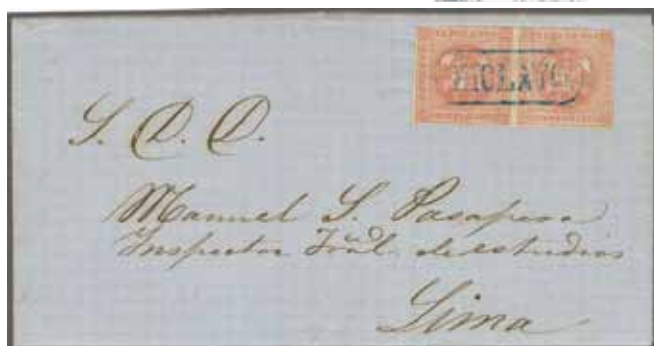 CHICLAYO
S. D. D.
Manuel S. Pasapera
Inspector Jral. de estudios
Lima